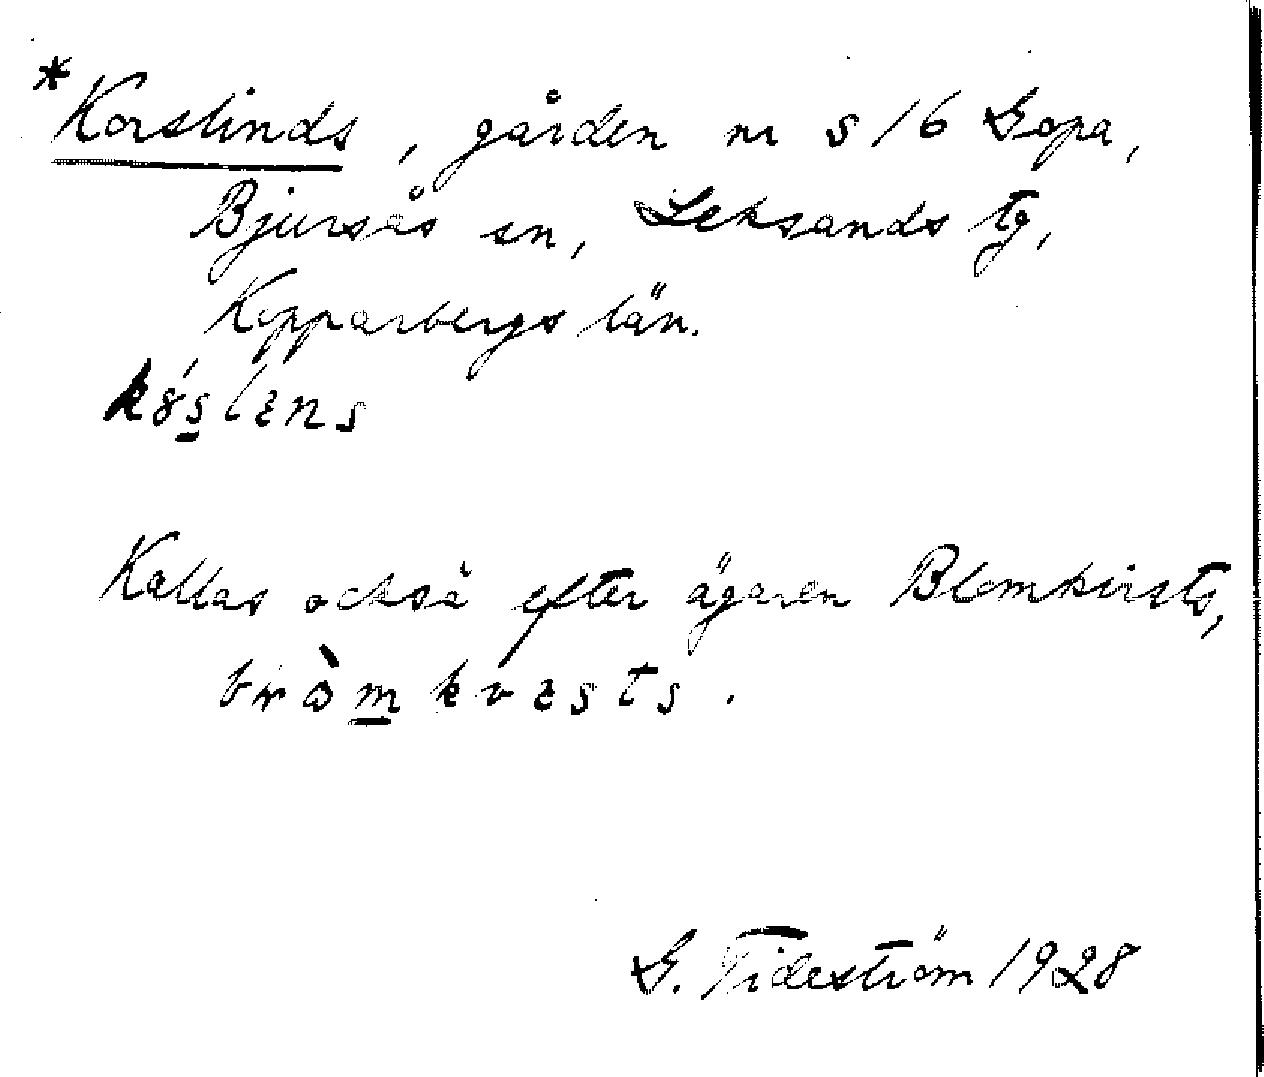 *Korslinds, gården nr s 16 Gopa,
Bjursås sn, Leksands tg,
Kopparbergs län.
Kallas också efter ägaren Blomkvists,
G. Tideström 1928